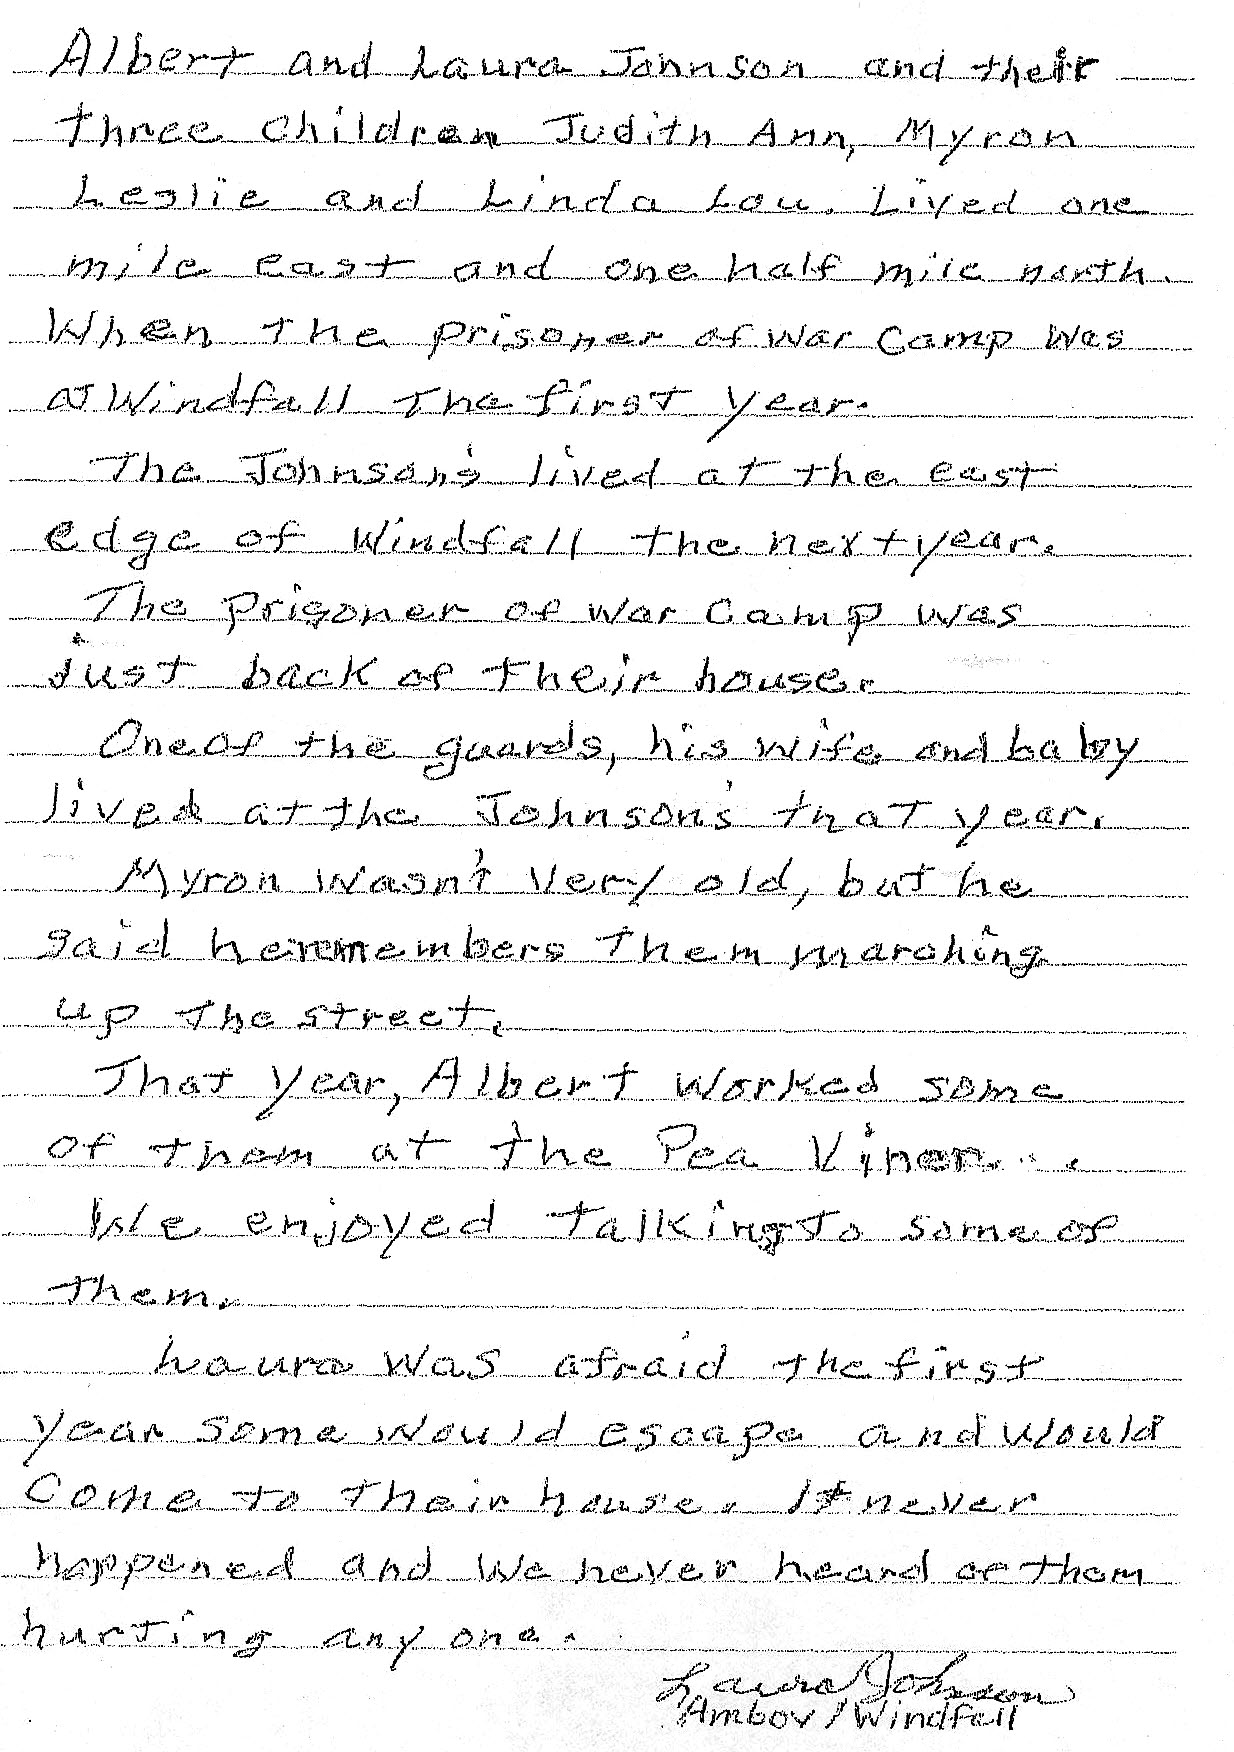 Albert and Laura Johnson and their
three children Judith Ann, Myron
Leslie and Linda Lou. Lived one
mile east and one half mile north.
When the prisoner of war camp was
at Windfall the first year.
The Johnson's lived at the east
edge of Windfall the next year.
The prisoner of war camp was
just back of their house.
One of the guards, his wife and baby
lived at the Johnson's that year.
Myron wasn't very old, but he
said he remembers them marching
up the street.
That year, Albert worked some
of them at the Pea Viner...
We enjoyed talking to some of
them.
Laura was afraid the first
year some would escape and would
come to their house. It never
happened and we never heard of them
hurting any one.
Laura Johnson
Amboy / Windfall